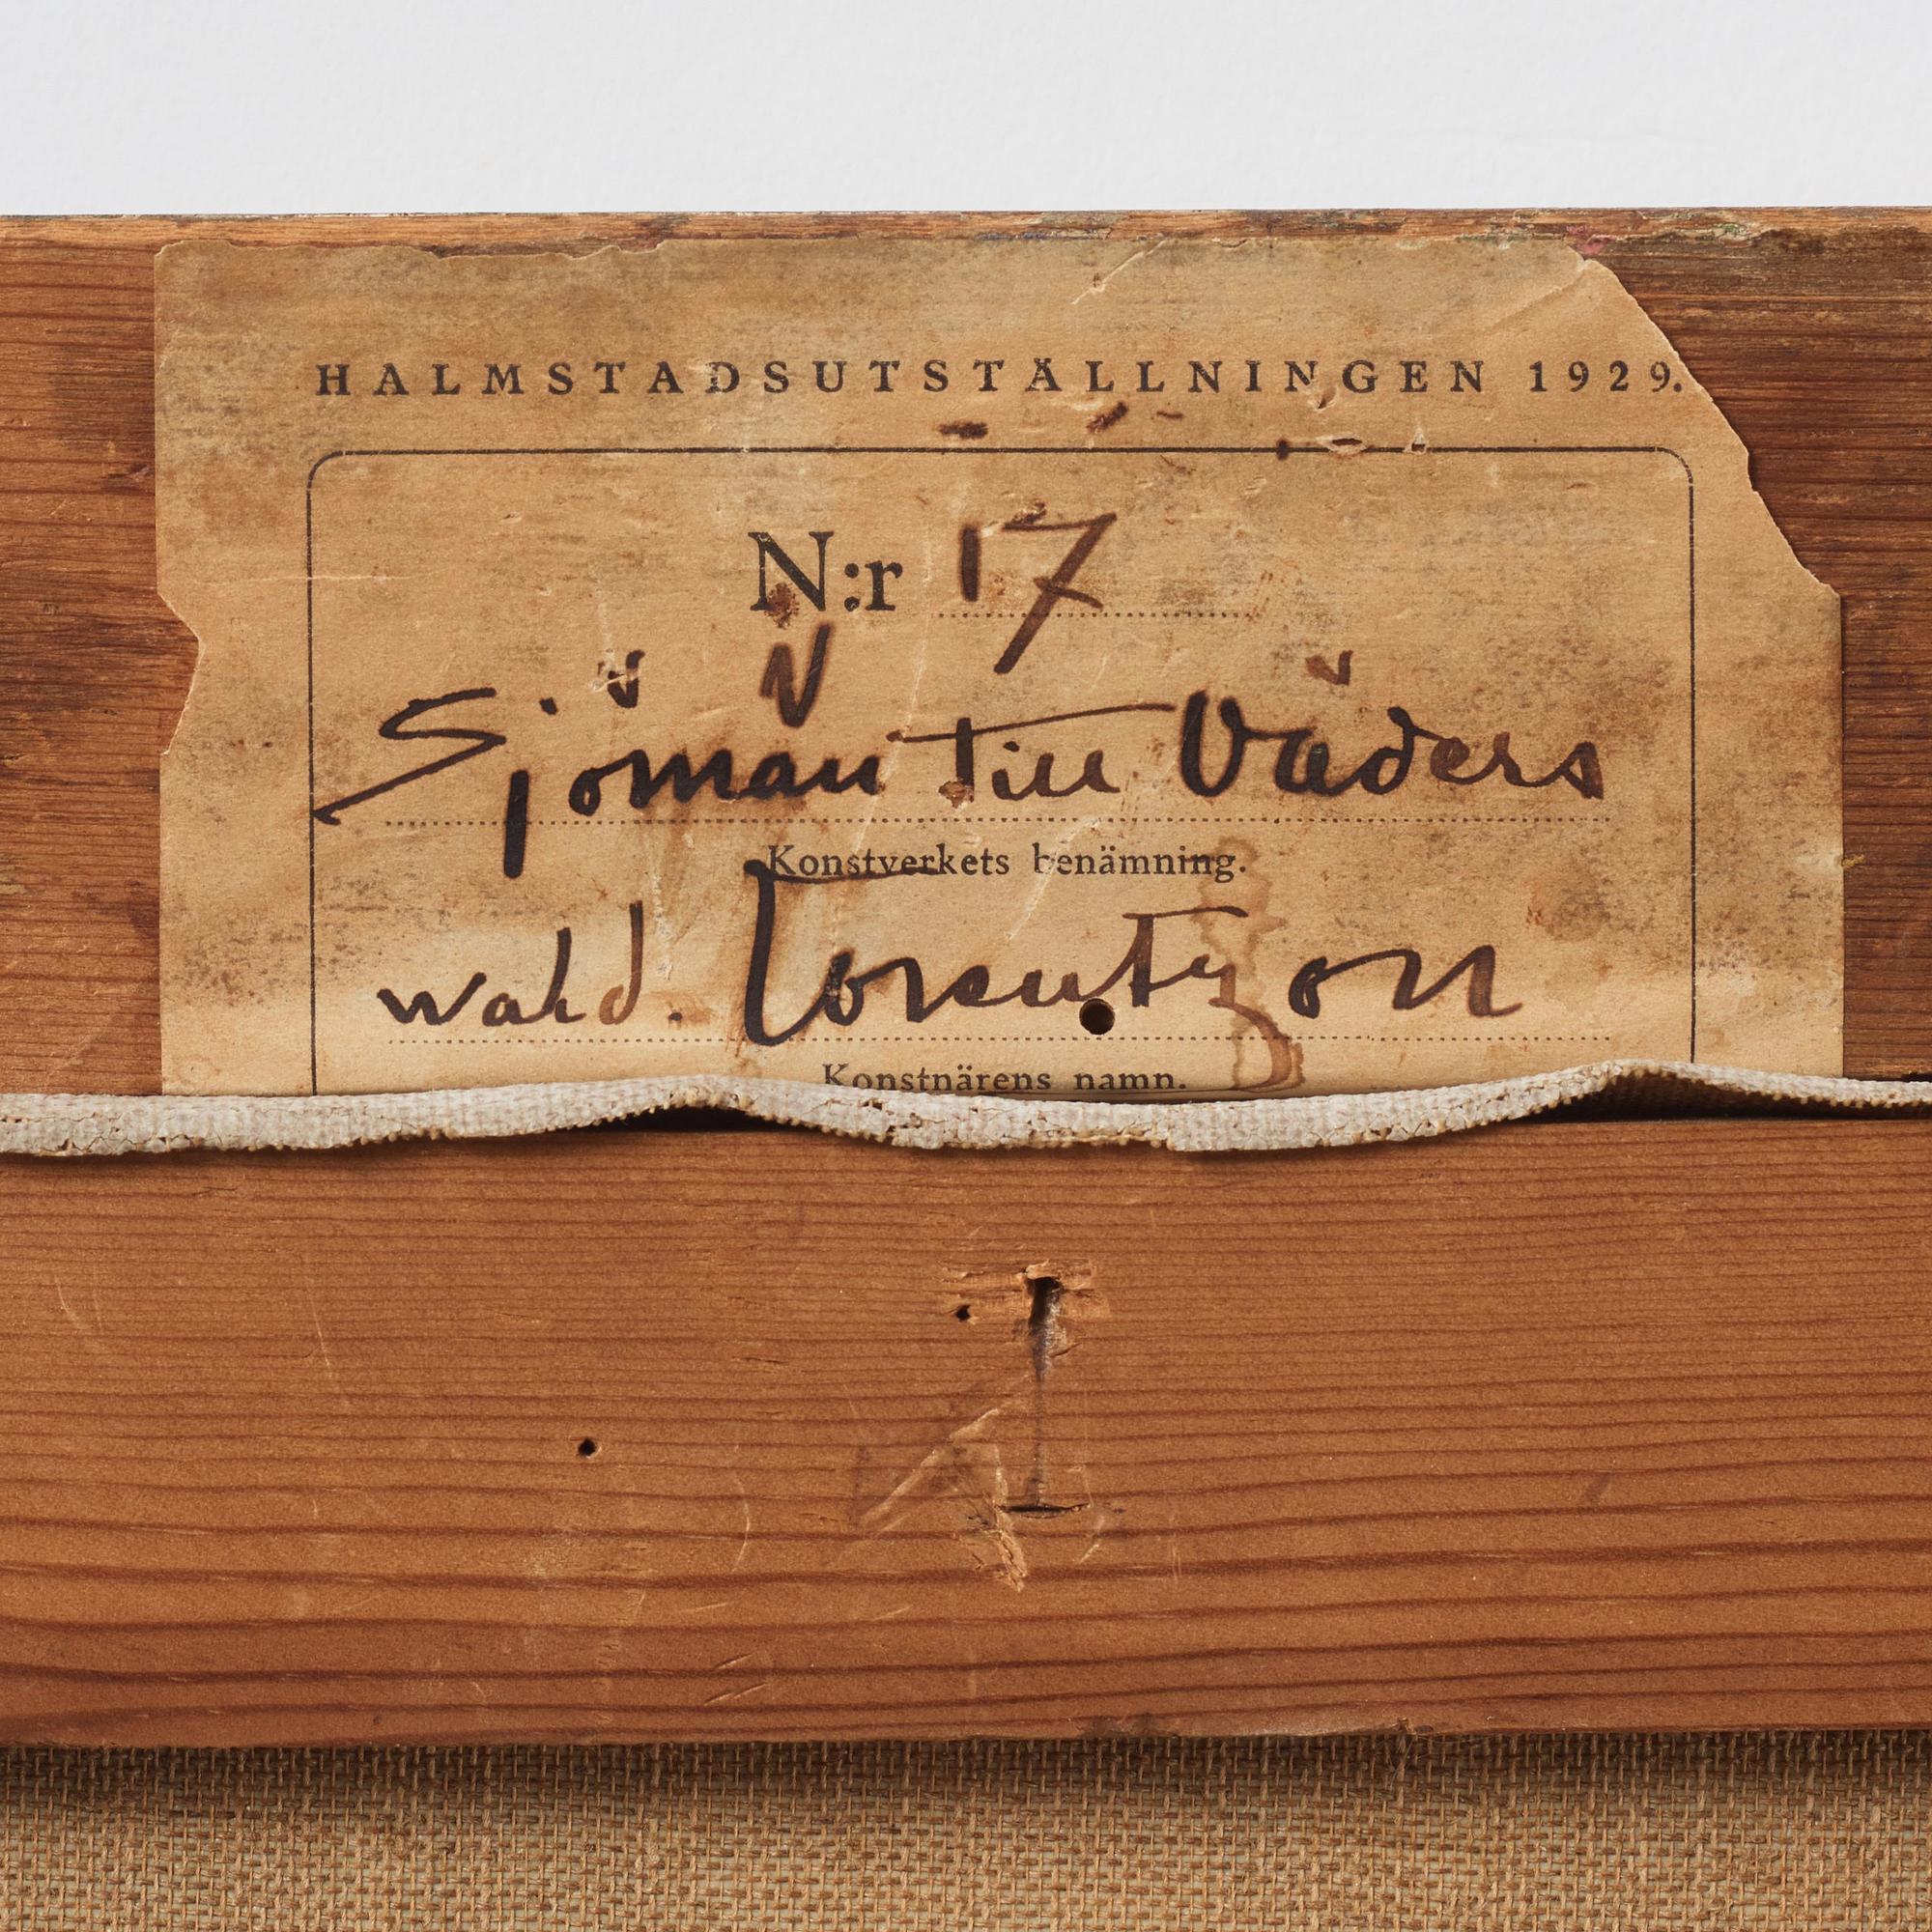 HALMSTADSUTSTÄLLNINGEN 1929.
N:r 17
Sjöman till Väders
Konstverkets benämning.
Wald. Lorentzon
Konstnärens namn.
I